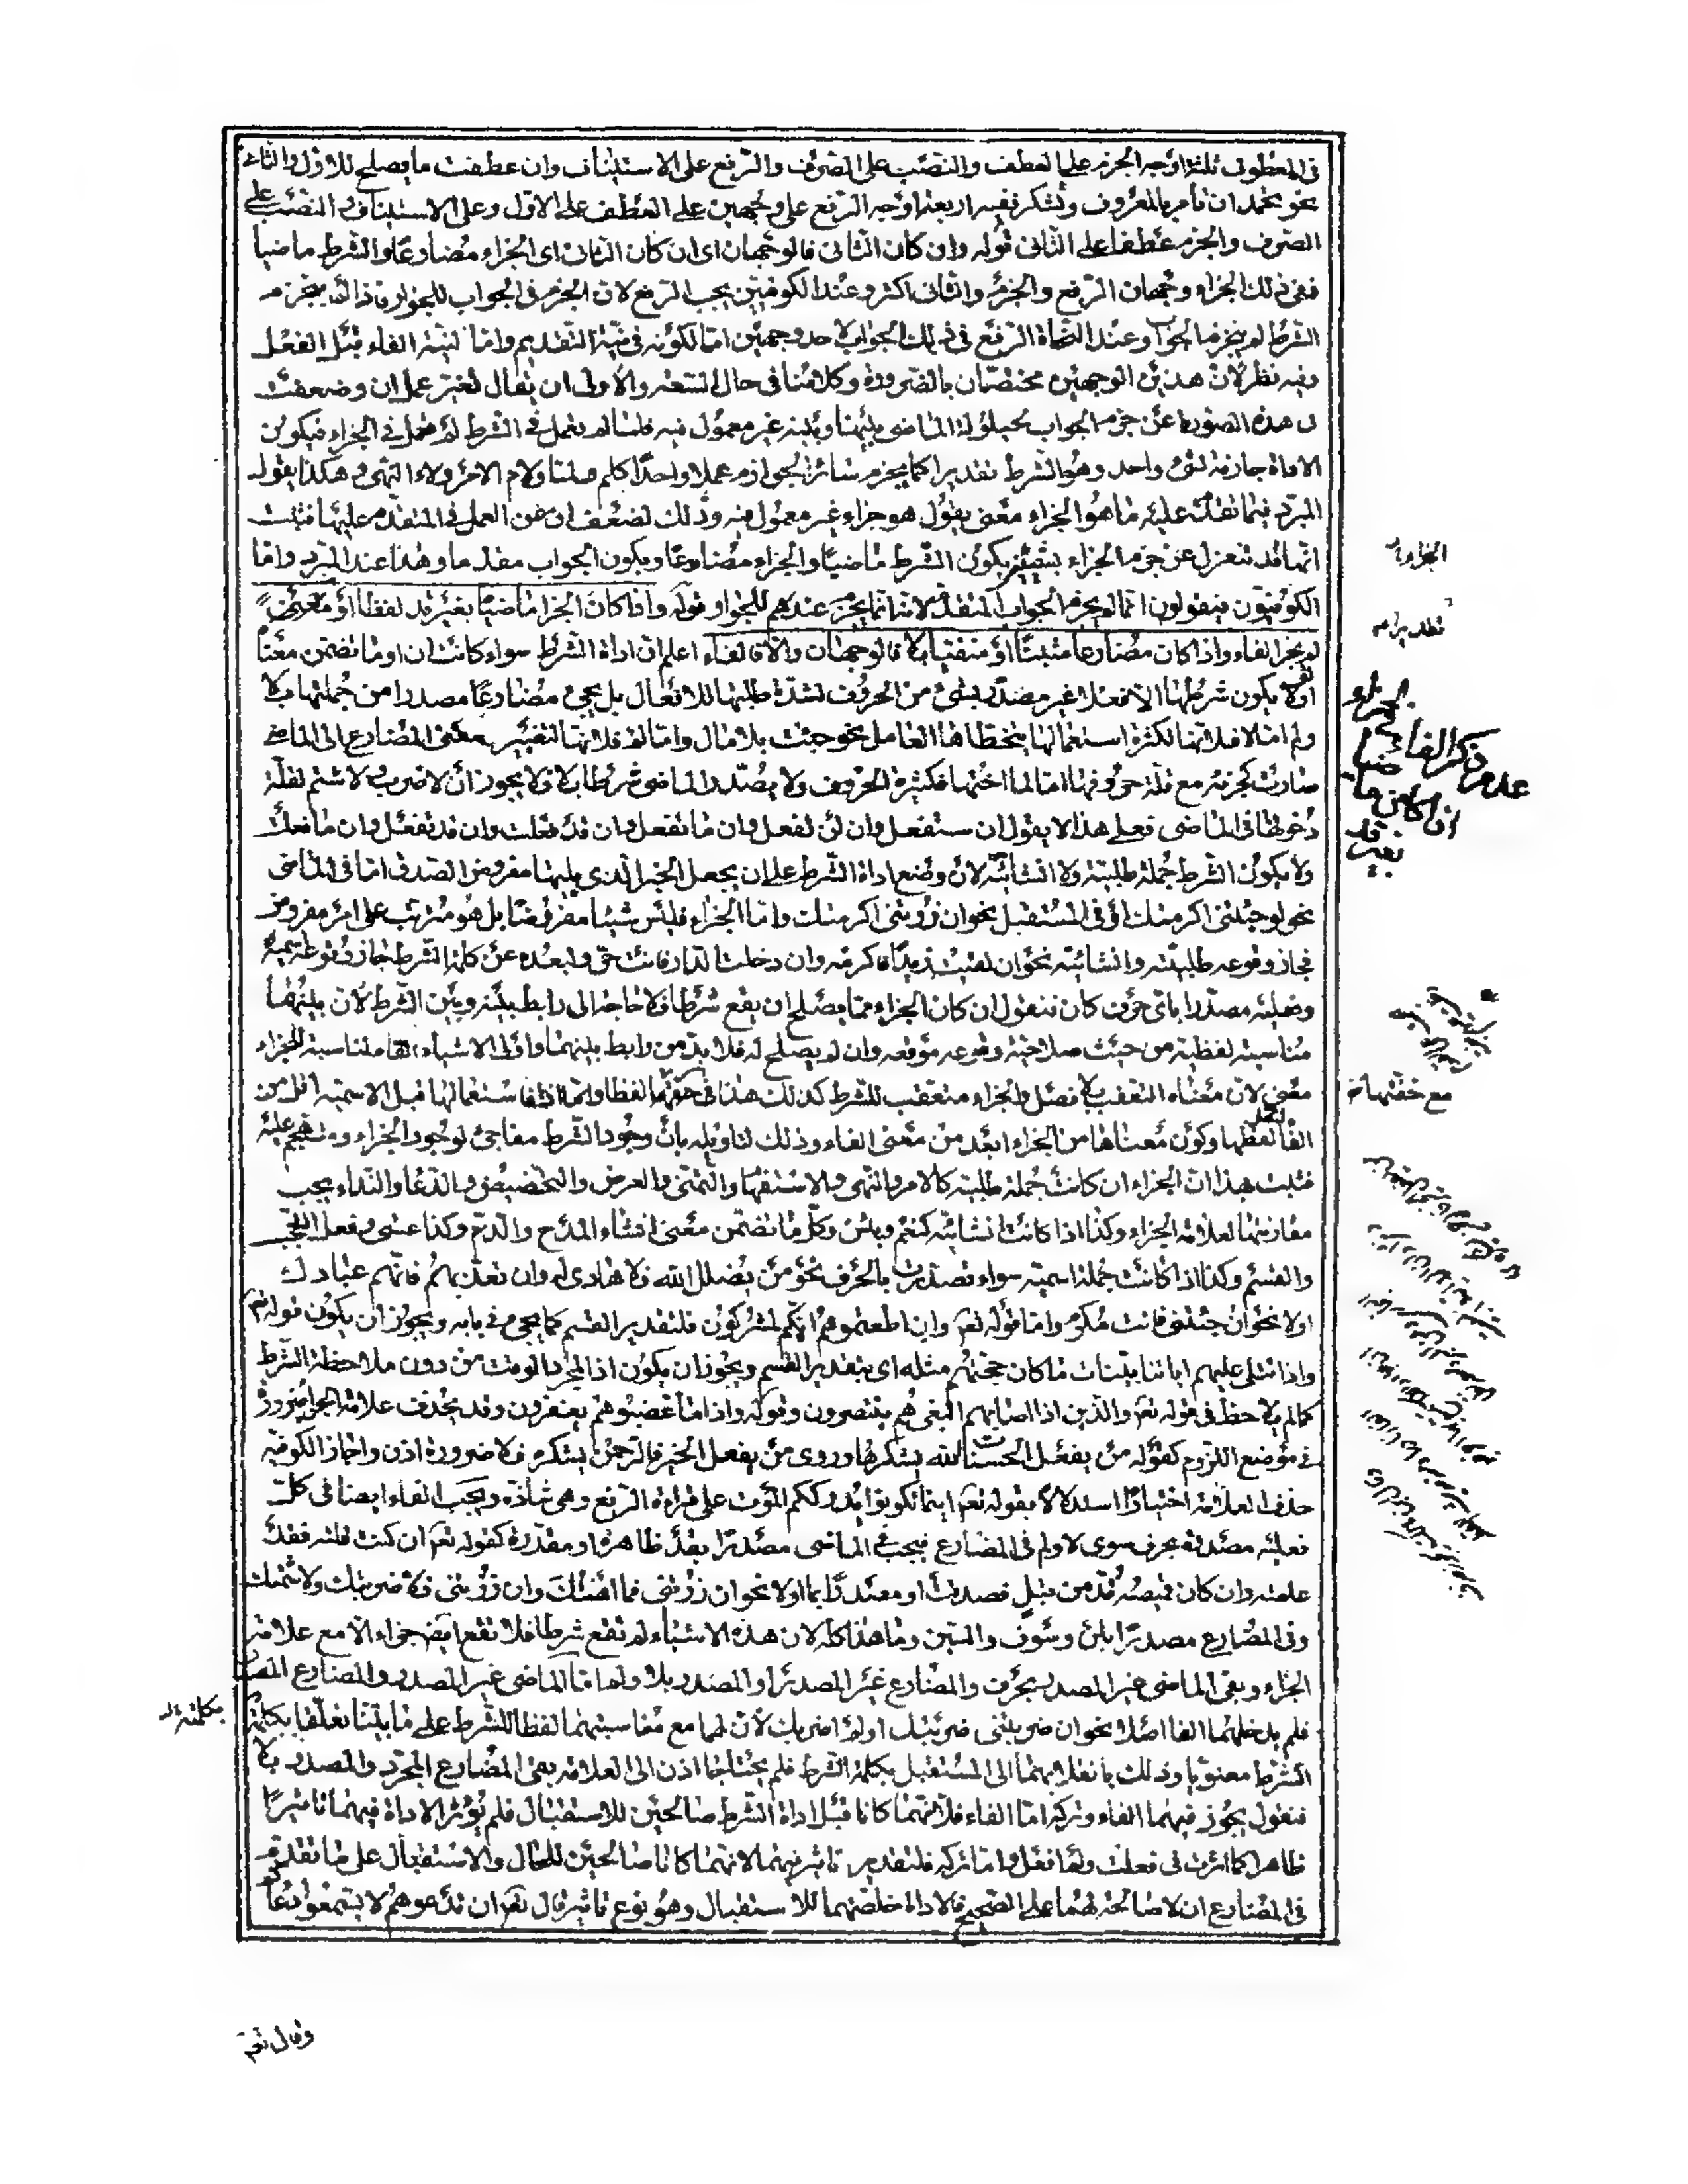 فى المعطوف ثلثة اوجه الجزم على العطف والنصب على الصرف والرفع على الاستيناف وان عطفت ما يصلح للاول والثانى
نحو تحمد ان تامر بالمعروف وتشكر ففيه اربعة اوجه الرفع على وجهين على العطف على الاول وعلى الاستيناف والنصب على
الصرف والجزم عطفا على الثانى قوله وان كان الثانى فالوجهان اى ان كان الثانى اى الجزاء مضارعًا والشرط ماضيا
ففى ذلك الجزاء وجهان الرفع والجزم والثانى اكثر وعند الكوفيين يجب الرفع لان الجزم فى الجواب للجوار فاذا لم ينجزم
الشرط لم ينجزم الجواب وعند النحاة الرفع فى ذلك الجواب لاحد وجهين اما لكونه فى نية التقديم واما لنية الفاء قبل الفعل
وفيه نظر لان هذين الوجهين مختصان بالضرورة وكلامنا فى حال السعة والاولى ان يقال لغير عمل ان وضعفت
فى هذه الصورة عن جزم الجواب لحيلولة الماضى بينها وبينه غير معمول فيه فلما لم يعمل فى الشرط لم يعمل فى الجزاء فيكون
الاداة جازمة لشئ واحد وهو الشرط تقديرا كما يجزم سائر الجوازم عملا واحدًا كلم ولما ولام الامر ولاء النهى وهكذا يقول
المبرد فيما تقدم عليه ما هو الجزاء معنى يقول هو جزاء غير معمول فيه وذلك لضعف ان عن العمل فى المتقدم عليها فثبت
انها قد تنعزل عن جزم الجزاء بشيئين بكون الشرط ماضيًا والجزاء مضارعًا وبكون الجواب مقدما وهذا عند المبرد واما
الكوفيون فيقولون انما لم يجزم الجواب المتقدم لانه انما يجزم عندهم للجوار قوله واذا كان الجزاء ماضيًا بغير قد لفظا او معنى
لم يجز الفاء واذا كان مضارعا مثبتًا او منفيا بلا فالوجهان والا فالفاء اعلم ان اداة الشرط سواء كانت ان او ما تضمن معنا
اولا يكون شرطها الا فعلا غير مصدر بشئ من الحروف لشدة طلبها للافعال بل يجئ مضارعا مصدرا من جملتها بلا
ولم اما لا فلانها لكثرة استعمالها يتخطاها العامل نحو جئت بلا مال واما لم فلانها لتغيير معنى المضارع الى الماضى
صارت كجزئه مع قلة حروفها اما لما اختها فكثيرة الحروف ولا يصدر الماضى شرطا بلا فلا يجوز ان لا ضرب ولا شتم لقلة
دخولها فى الماضى فعلى هذا لا يقول ان ستفعل وان لن تفعل وان ما تفعل وان قد فعلت وان قد تفعل وان ما فعلت
ولا يكون الشرط جملة طلبية ولا انشائية لان وضع اداة الشرط على ان يجعل الخبر الذى يليها مفروض الصدق اما فى الماضى
نحو لو جئتنى اكرمتك او فى المستقبل نحو ان زرتنى اكرمتك واما الجزاء فليس شيئا مفروضا بل هو مترتب على امر مفروض
فجاز وقوعه طلبية وانشائية نحو ان لقيت زيدًا فاكرمه وان دخلت الدار فانت حر ولبعده عن كلمة الشرط جاز وقوعه اسمية
وفعلية مصدرا باى حرف كان فنقول ان كان الجزاء مما يصلح ان يقع شرطا فلا حاجة الى رابط بينه وبين الشرط لان بينهما
مناسبة لفظية من حيث صلاحية وقوعه موقعه وان لم يصلح له فلا بد من رابط بينهما واولى الاشياء الفاء لمناسبة للجزاء
معنى لان معناه التعقيب بلا فصل والجزاء متعقب للشرط كذلك هذا فى حقها لفظا واما اذا فاستعمالها قبل الاسمية اقل من
الفاء لفظها وكون معناها من الجزاء ابعد من معنى الفاء وذلك لتاويله بان وجود الشرط مفاجئ لوجود الجزاء ومتهجم عليه
فثبت بهذا ان الجزاء ان كانت جملة طلبية كالامر والنهى والاستفهام والتمنى والعرض والتحضيض والدعاء والنداء يجب
مقارنتها لعلامة الجزاء وكذا اذا كانت انشائية كنعم وبئس وكل ما تضمن معنى انشاء المدح والذم وكذا عسى وفعل التعجب
والقسم وكذا اذا كانت جملة اسمية سواء تصدرت بالحرف نحو من يضلل الله فلا هادى له وان تعذبهم فانهم عبادك
اولا نحو ان جئتنى فانت مكرم واما قوله تعم وان اطعتموهم انكم لمشركون فلتقدير القسم كما يجئ فى بابه ويجوز ان يكون قوله تعم
واذا تتلى عليهم اياتنا بينات ما كان حجتهم مثله اى بتقدير القسم ويجوز ان يكون اذا لمجرد الوقت من دون ملاحظة الشرط
كما لم يلاحظ فى قوله تعم والذين اذا اصابهم البغى هم ينتصرون وقوله واذا ما غضبوا هم يغفرون وقد يحذف علامة الجزاء ضرورة
فى موضع اللزوم كقوله من يفعل الحسنات الله يشكرها وروى من يفعل الخير فالرحمن يشكره فلا ضرورة اذن واجاز الكوفية
حذف العلامة اختيارًا استدلالا بقوله تعم اينما تكونوا يدرككم الموت على قراءة الرفع وهى شاذة ويجب الفاء ايضا فى كل
فعلية مصدرة بحرف سوى لا ولم فى المضارع فيجب فى الماضى مصدرًا بقد ظاهرة او مقدرة كقوله تعم ان كنت قلته فقد
علمته وان كان قميصه قد من قبل فصدقت او مصدرًا بما او لا نحو ان زرتنى فما اهنتك وان زرتنى فلا ضربتك ولا شتمتك
وفى المضارع مصدرًا بلن وسوف والسين وما هذا كله لان هذه الاشياء لم تقع شرطا فلا تقع ايضا جزاء الا مع علامة
الجزاء وبقى الماضى غير المصدر بحرف والمضارع غير المصدر او المصدر بلا ولم اما الماضى غير المصدر والمضارع المصدر
فلم يدخلهما الفا اصلا نحو ان ضربتنى ضربتك او لم اضربك لان لهما مع مناسبتهما لفظا للشرط على ما بينا تعلقا بكلمة
الشرط معنويا وذلك بانقلابهما الى المستقبل بكلمة الشرط فلم يحتاجا اذن الى العلامة بقى المضارع المجرد والمصدر بلا
فنقول يجوز فيهما الفاء وتركه اما الفاء فلانهما كانا قبل اداة الشرط صالحين للاستقبال فلم يؤثر الاداة فيهما تاثيرًا
ظاهرا كما اثرت فى فعلت ولم افعل واما تركه فلتقدير تاثيرفيهما لانهما كانا صالحين للحال والاستقبال على ما تقدم
فى المضارع ان لا صالحة لهما على الصحيح فالاداة خلصتهما للاستقبال وهو نوع تاثير قال تعم ان تدعوهم لا يسمعوا دعاءكم
تقديرا
مع خفتها
بكلمة
وقال تعم